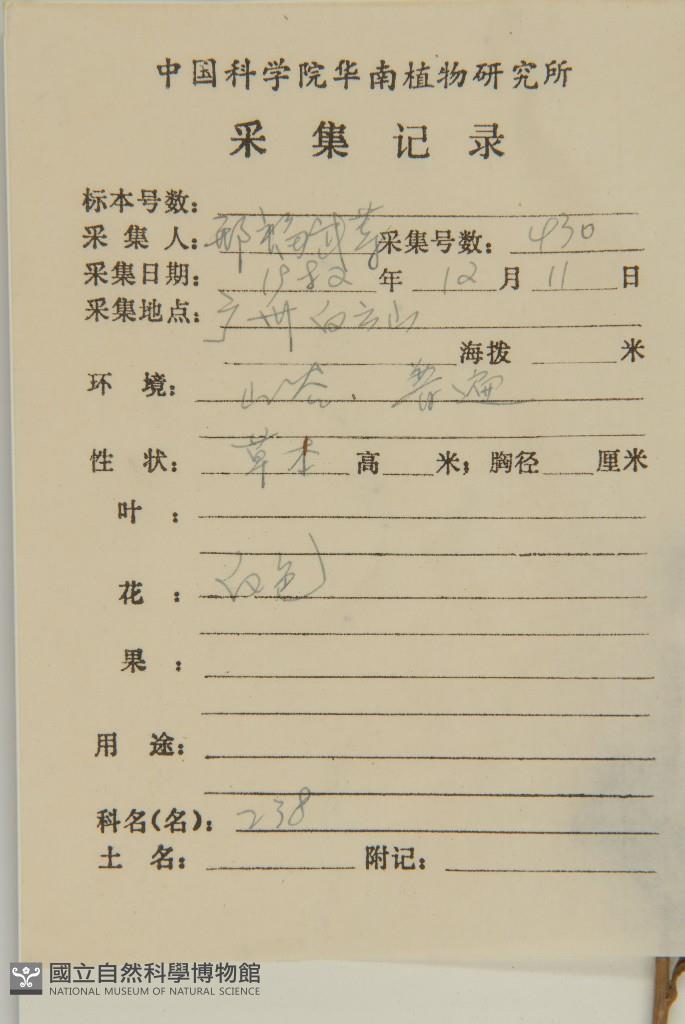 中国科学院华南植物研究所
采集记录
标本号数:
采集人: 邢福武等 采集号数: 430
采集日期: 1982年12月11日
采集地点: 广州白云山
海拨 米
环境: 山谷、普遍
性状: 草本 高 米; 胸径 厘米
叶:
花: 白色
果:
用途:
科名(名): 238
土名: 附记:
國立自然科學博物館
NATIONAL MUSEUM OF NATURAL SCIENCE